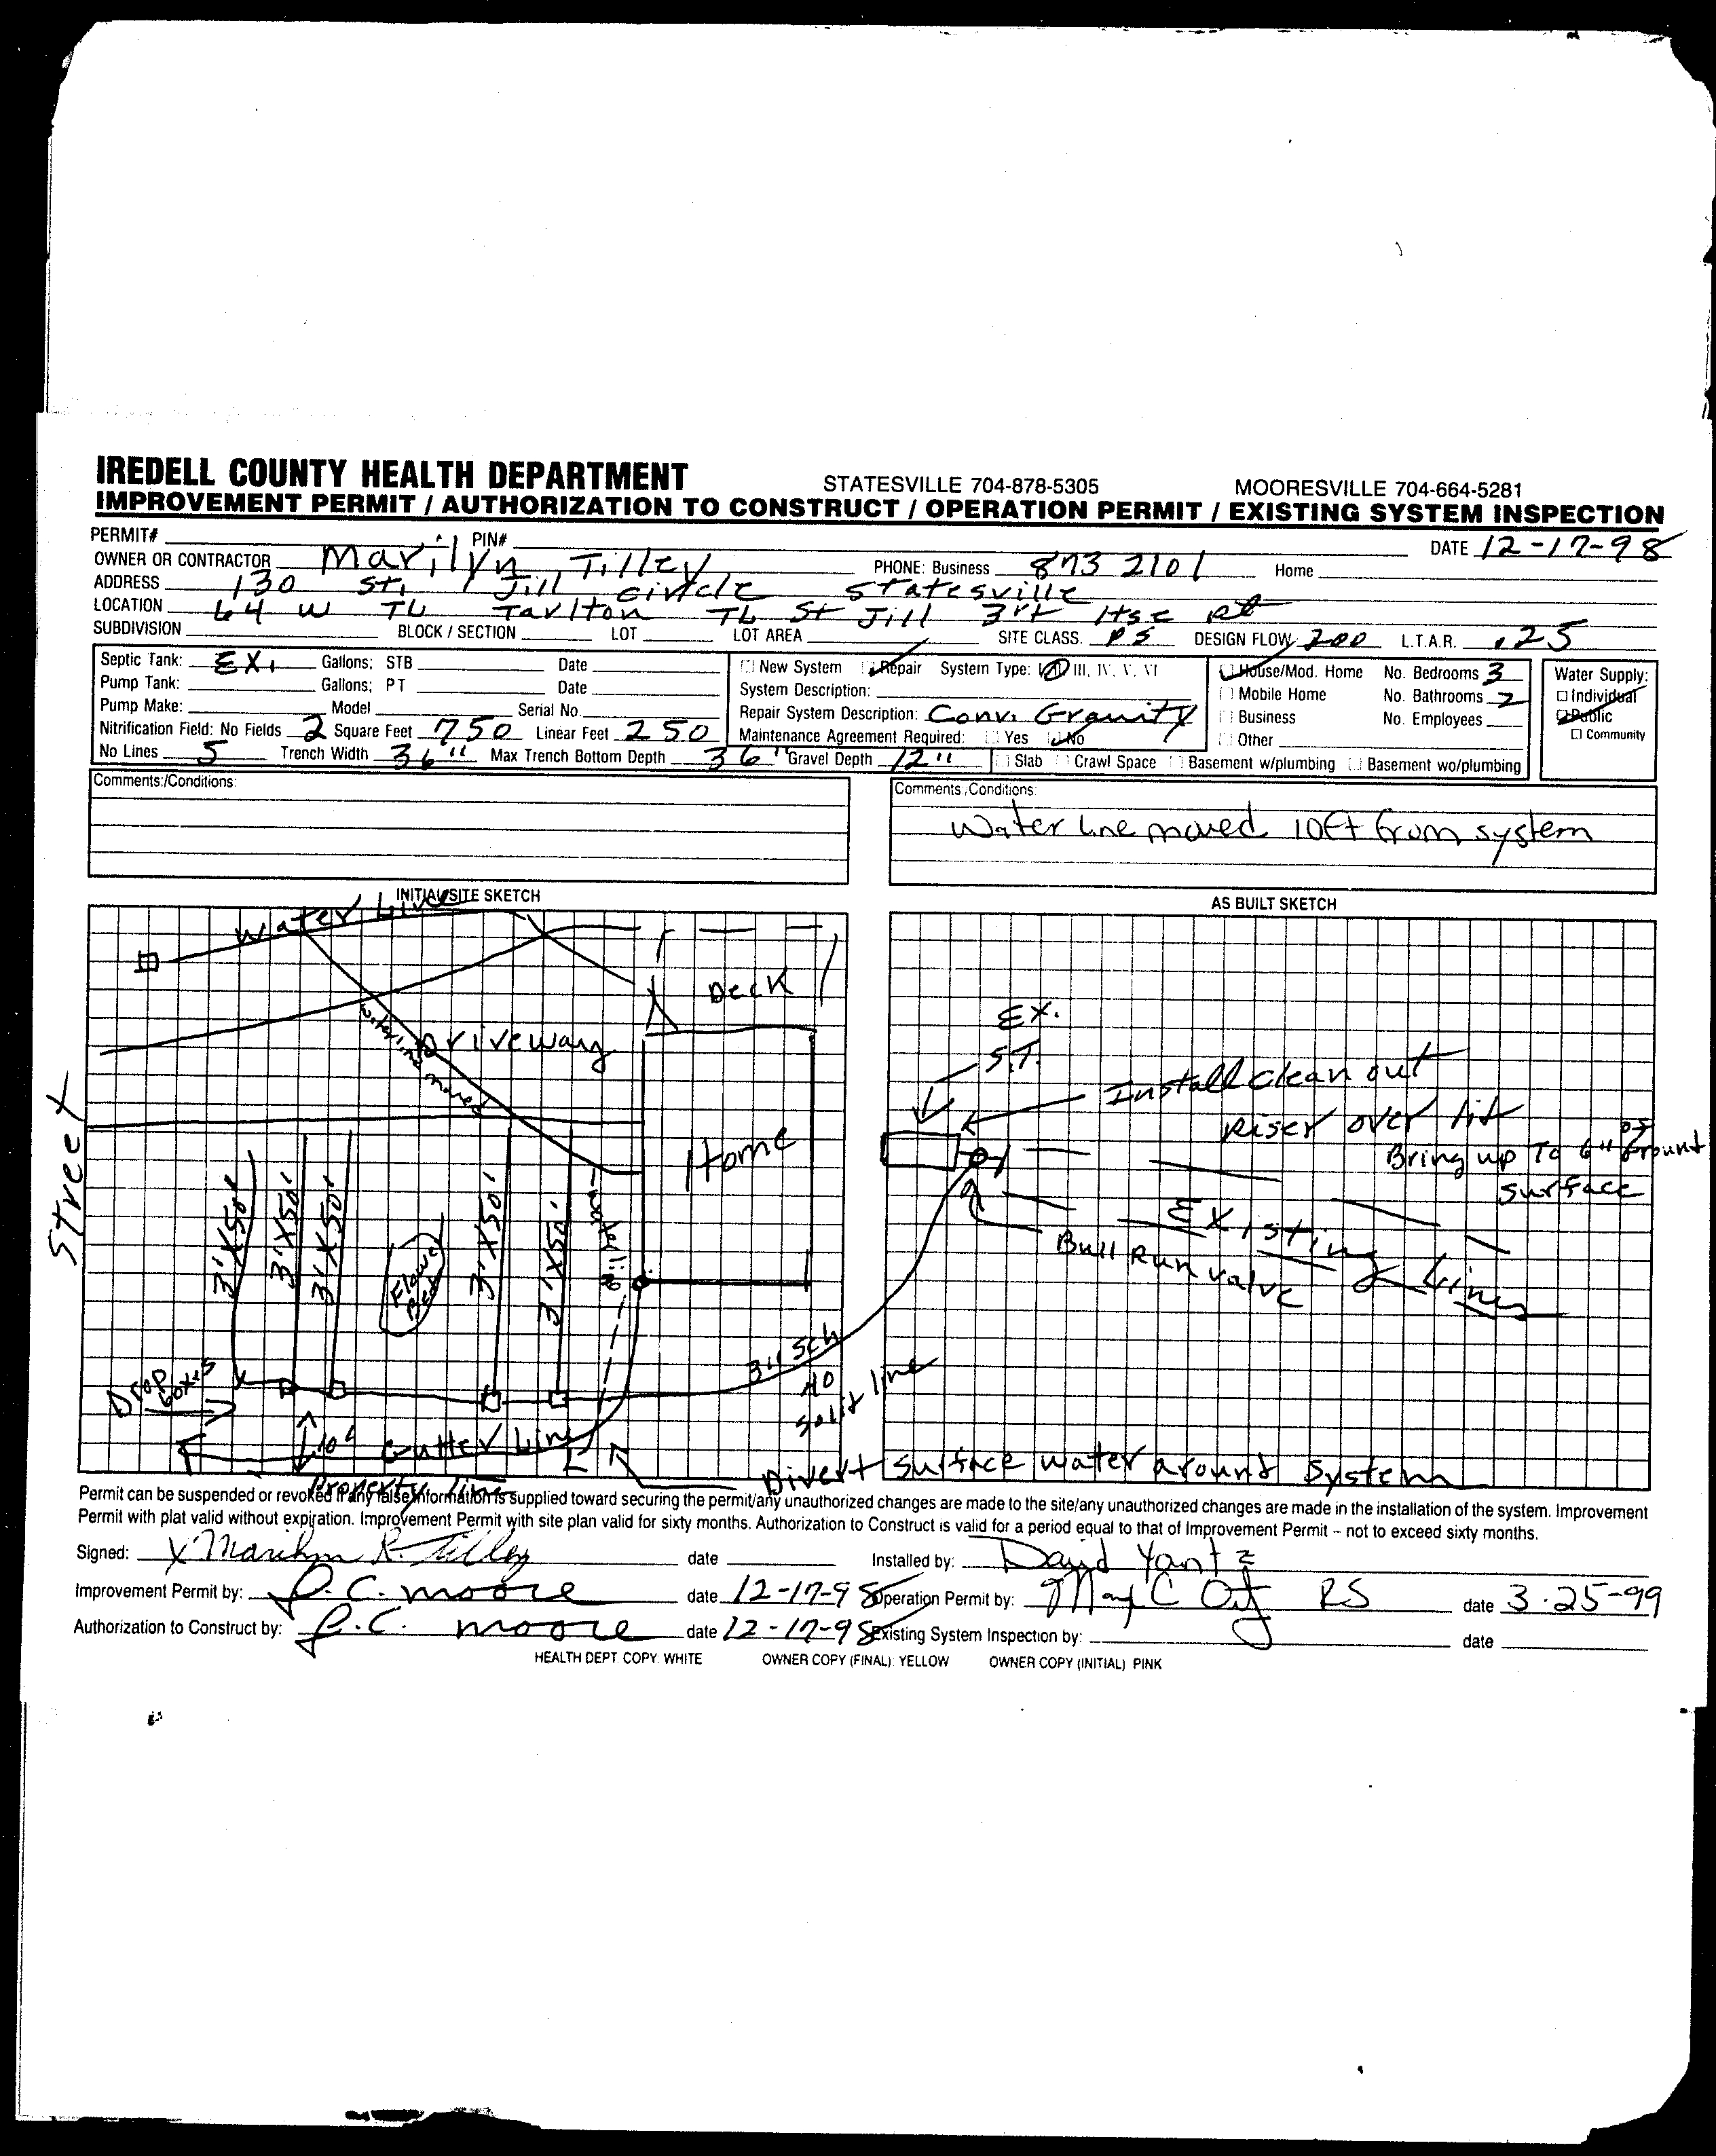 IREDELL COUNTY HEALTH DEPARTMENT STATESVILLE 704-878-5305 MOORESVILLE 704-664-5281
IMPROVEMENT PERMIT / AUTHORIZATION TO CONSTRUCT / OPERATION PERMIT / EXISTING SYSTEM INSPECTION
PERMIT# PIN# DATE 12-17-98
OWNER OR CONTRACTOR Marilyn Tilley PHONE: Business 873 2101 Home
ADDRESS 130 St. Jill circle Statesville
LOCATION 64 W TL Tarlton TL St Jill 3rd Hse Rt
SUBDIVISION BLOCK / SECTION LOT LOT AREA SITE CLASS. PS DESIGN FLOW 200 L.T.A.R. .25
Septic Tank: EX. Gallons; STB Date New System Repair System Type: I, II, III, IV, V, VI House/Mod. Home No. Bedrooms 3 Water Supply:
Pump Tank: Gallons; PT Date System Description: Mobile Home No. Bathrooms 2 Individual
Pump Make: Model Serial No. Repair System Description: Conv. Gravity Business No. Employees Public
Nitrification Field: No Fields 2 Square Feet 750 Linear Feet 250 Maintenance Agreement Required: Yes No Other Community
No Lines 5 Trench Width 36" Max Trench Bottom Depth 36" Gravel Depth 12" Slab Crawl Space Basement w/plumbing Basement wo/plumbing
Comments:/Conditions: Comments:/Conditions:
Water line moved 10ft from system
INITIAL/SITE SKETCH AS BUILT SKETCH
Water Line
Deck
EX.
S.T.
waterline moved
Driveway
Install clean out
Riser over lid
Bring up To 6" of Ground
surface
Street
Home
3'X50'
3'X50'
3'X50'
Flower
Bed
3'X50'
3'X50'
waterline
Existing Lines
Bull Run valve
3" Sch
40
Solid line
Drop
boxes
10'
Gutter Line
Divert surface water around System
Property line
Permit can be suspended or revoked if any false information is supplied toward securing the permit/any unauthorized changes are made to the site/any unauthorized changes are made in the installation of the system. Improvement
Permit with plat valid without expiration. Improvement Permit with site plan valid for sixty months. Authorization to Construct is valid for a period equal to that of Improvement Permit – not to exceed sixty months.
Signed: X Marilyn R. Tilley date Installed by: David Yantz
Improvement Permit by: R.C. Moore date 12-17-98 Operation Permit by: RS date 3-25-99
Authorization to Construct by: R.C. Moore date 12-17-98 Existing System Inspection by: date
HEALTH DEPT. COPY: WHITE OWNER COPY (FINAL): YELLOW OWNER COPY (INITIAL) PINK